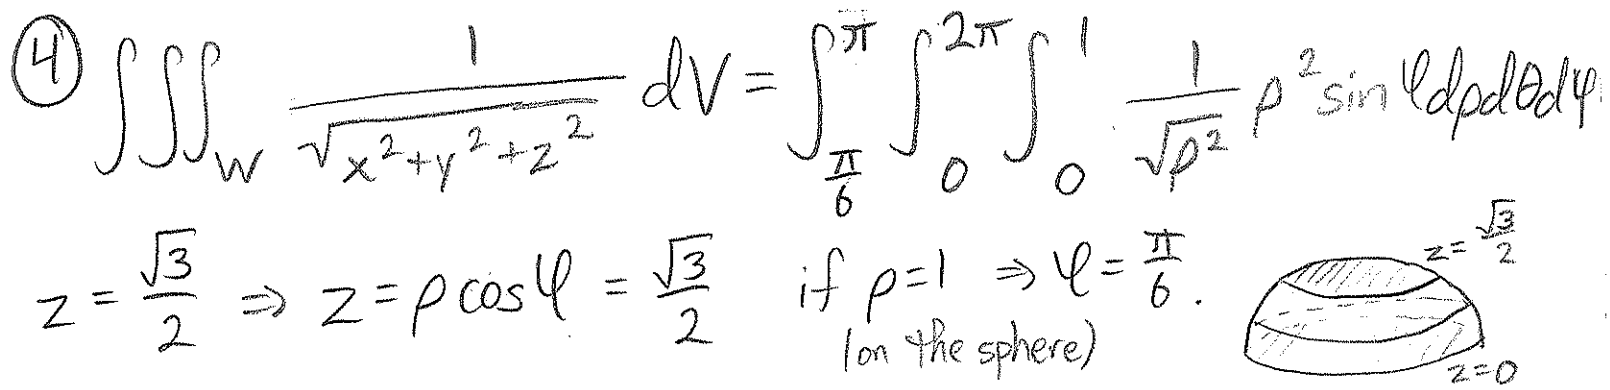 ④ ∫∫∫_W 1/√(x²+y²+z²) dV = ∫_{π/6}^{π} ∫_0^{2π} ∫_0^1 1/√(ρ²) ρ² sin φ dρdθdφ
z = √3/2 ⇒ z = ρ cos φ = √3/2 if ρ=1 ⇒ φ = π/6.
(on the sphere)
z = √3/2
z=0